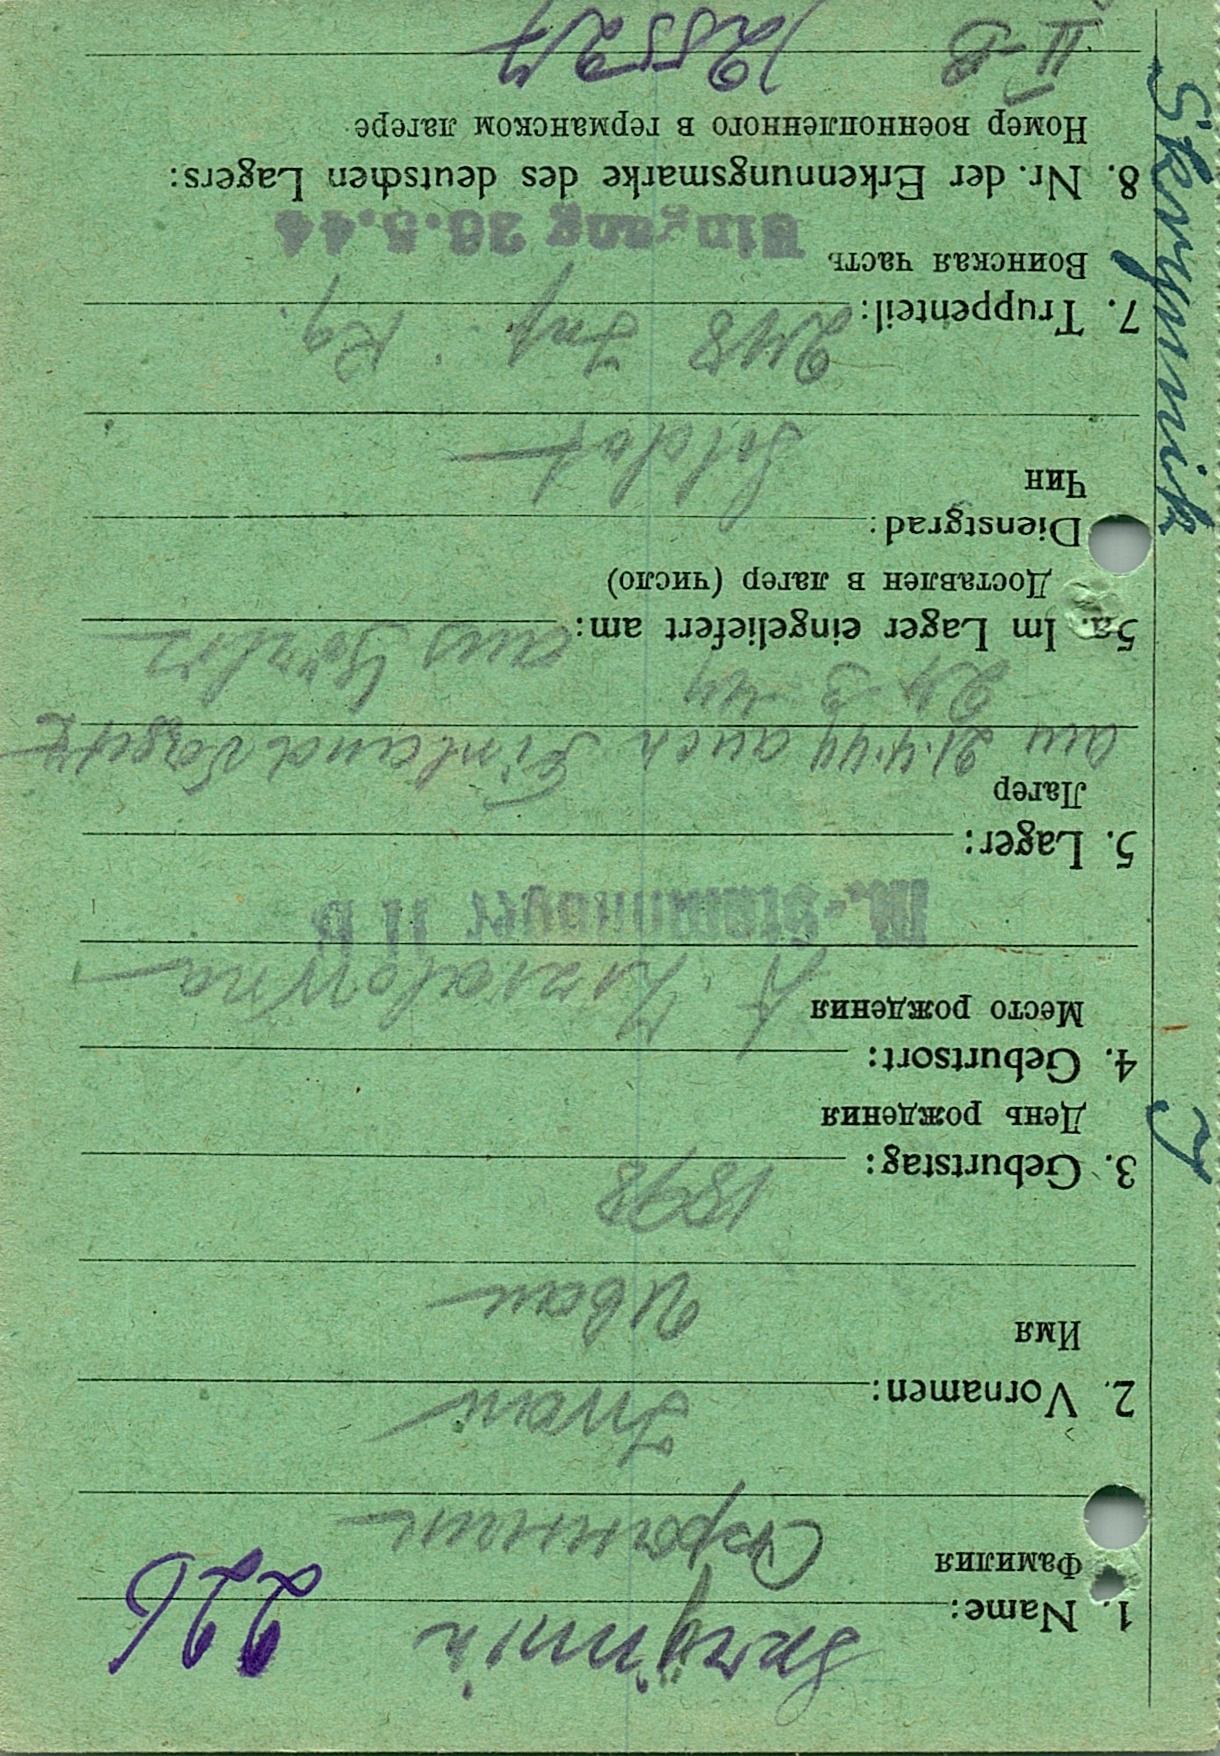 226
1. Name: Skrypnnik
Фамилия Скрыпник
2. Vornamen: Iwan
Имя Иван
3. Geburtstag: 1898
День рождения
4. Geburtsort:
Место рождения
5. Lager: II B
Лагер
am 21.4.44 auch
24-3-44
5a. Im Lager eingeliefert am: aus
Доставлен в лагер (число)
Dienstgrad: Soldat
Чин
7. Truppenteil: 248 Inf. Rg.
Воинская часть
Eingang 26.5.44
8. Nr. der Erkennungsmarke des deutschen Lagers:
Номер военнопленного в германском лагере
II-B 125527
Skrypnnik